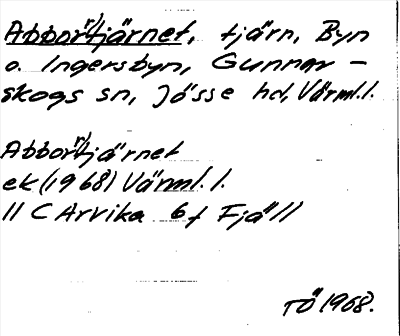 Abborr)tjärnet, tjärn, Byn
o. Ingersbyn, Gunnar-
skogs sn, Jösse hd, Värml. l.
Abborr)tjärnet
ek (1968) Värml. l.
11 C Arvika 6 f Fjäll
TÖ 1968.